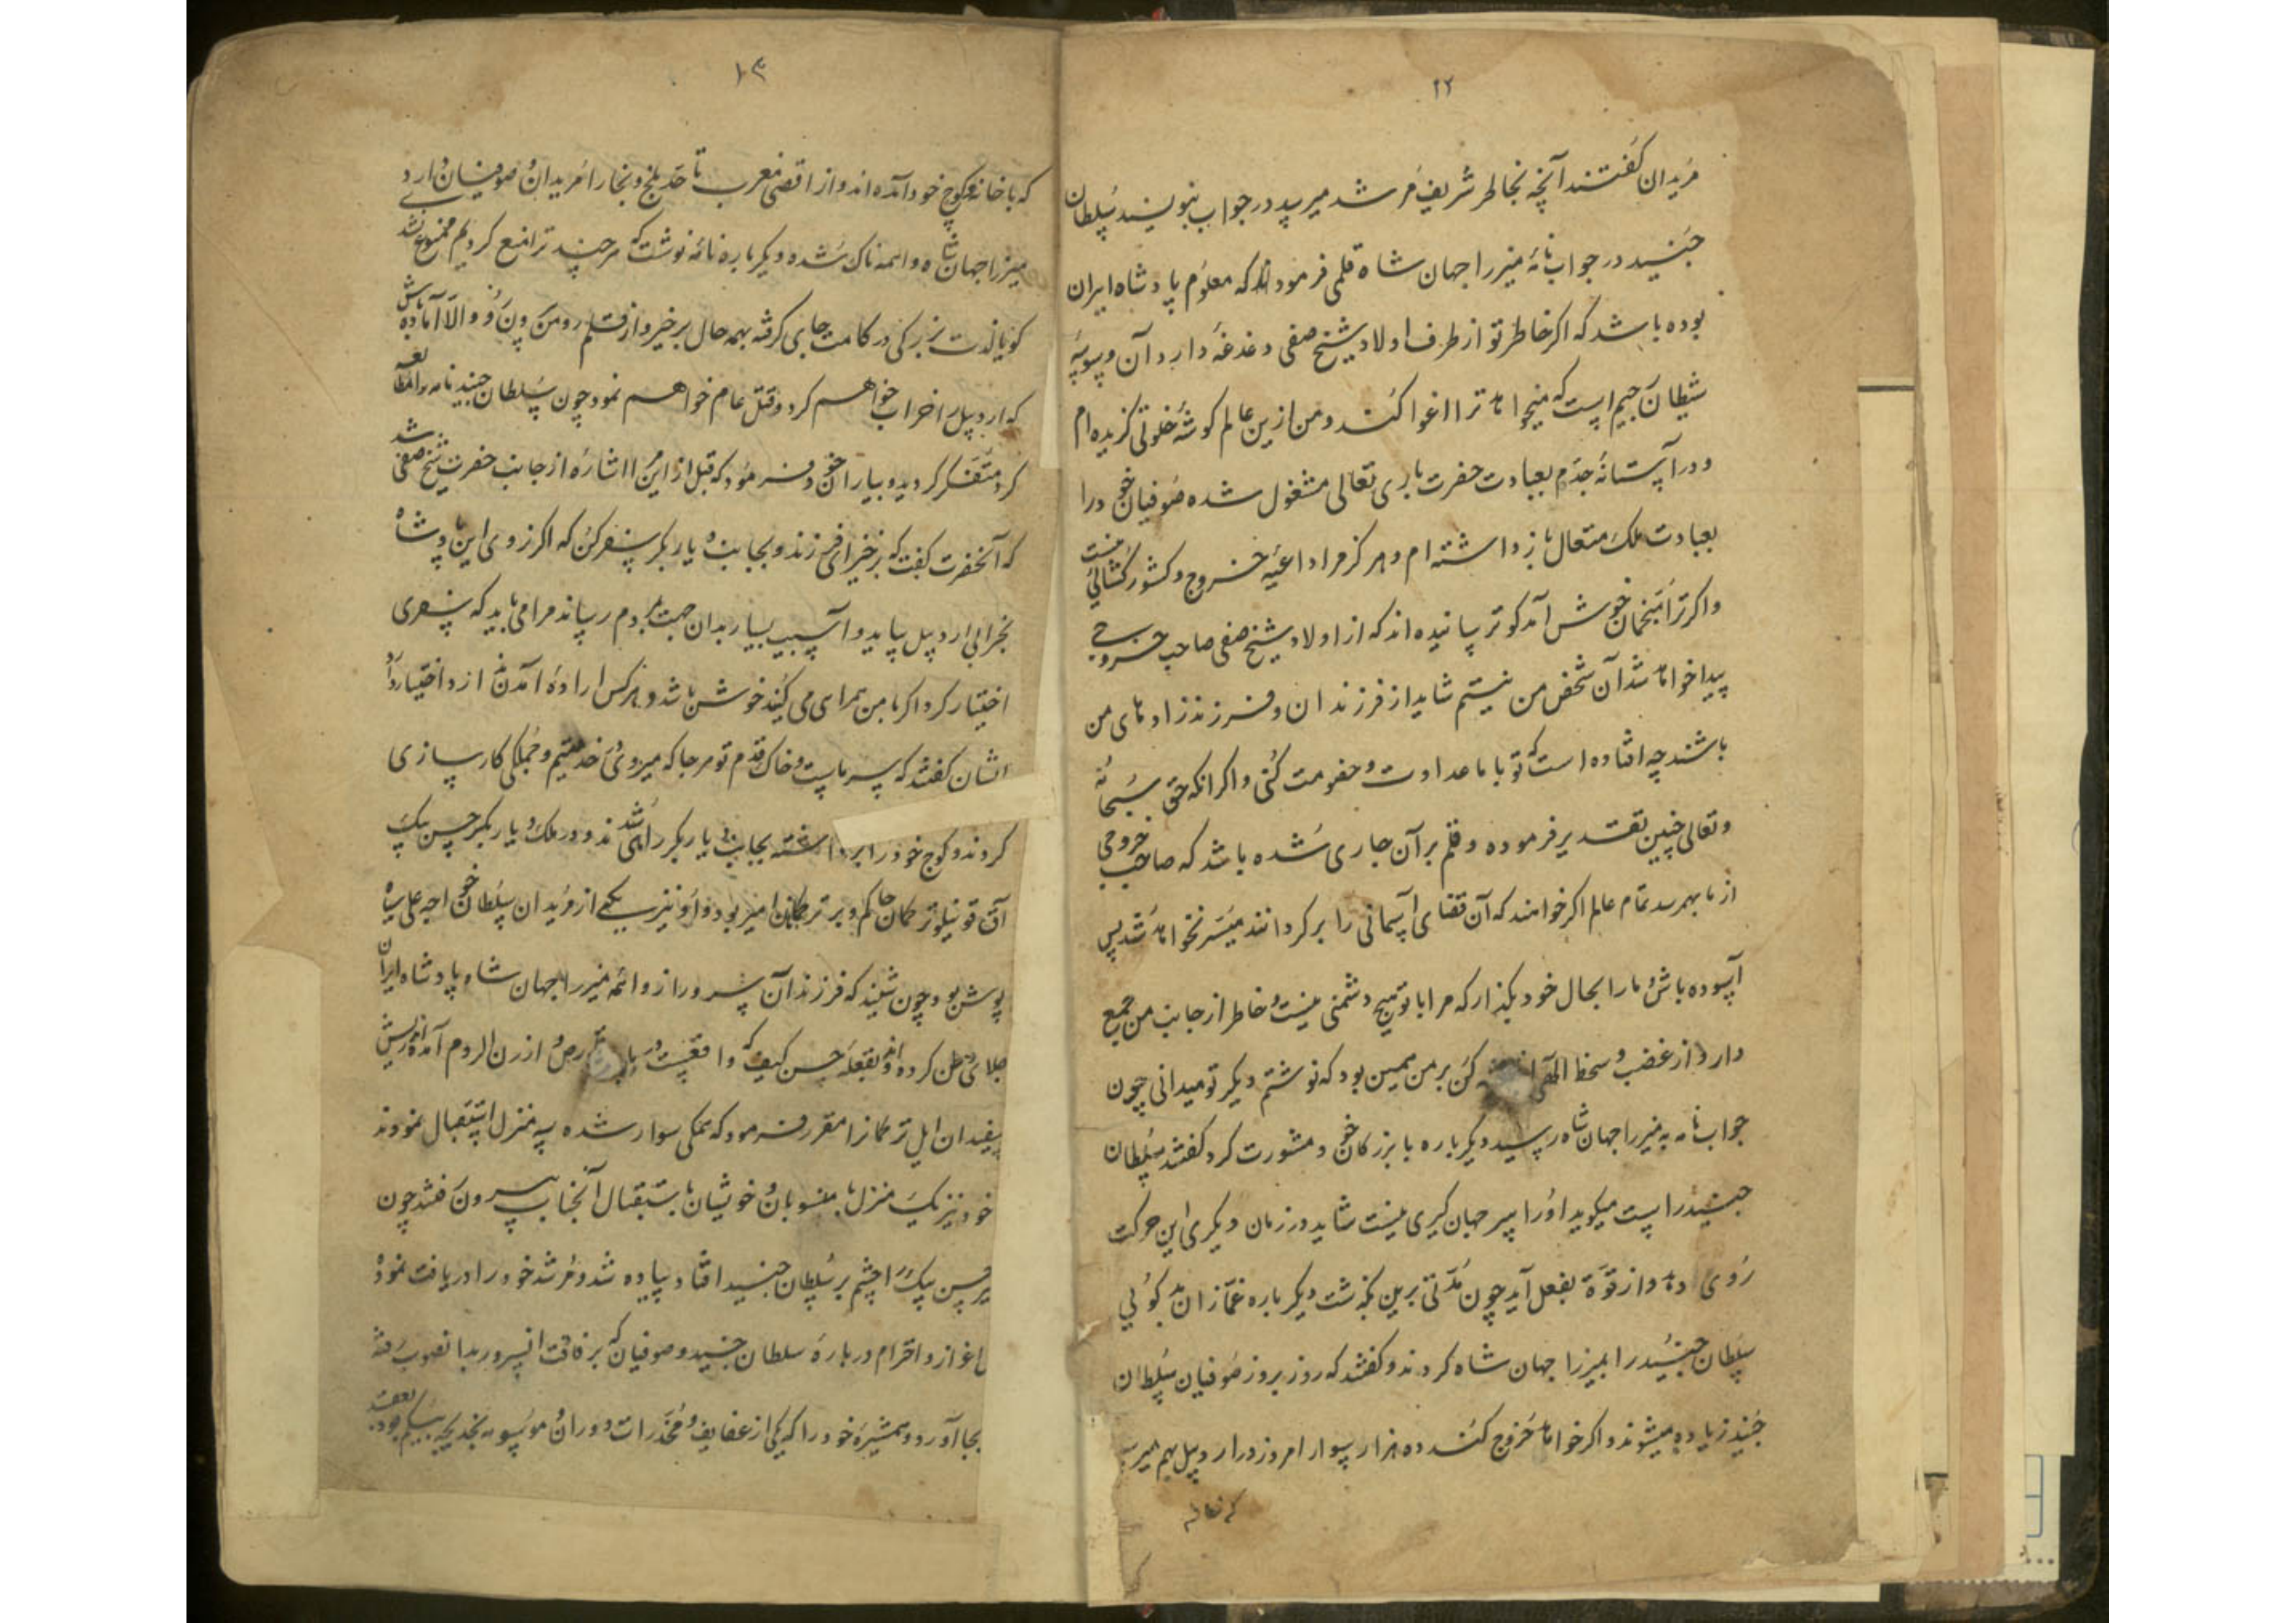 ۲۲
مریدان گفتند آنچه بخاطر شریف مرشد میرسد در جواب بنویسند سلطان
جنید در جواب نامهٔ میرزا جهان شاه قلمی فرمودند که معلوم پادشاه ایران
بوده باشد که اکر خاطر تو از طرف اولاد شیخ صفی دغدغهٔ دارد آن وسوسهٔ
شیطان رجیم است که میخواهد ترا اغوا کند و من ازین عالم کوشهٔ خلوتی کزیده ام
و در آستانهٔ جدم بعبادت حضرت باری تعالی مشغول شده صوفیان خود را
بعبادت ملک متعال بازداشته ام و هرکز مرا داعیه خروج و کشورکشائی نیست
و اکر ترا منجمان خوش آمدکو ترسانیده اند که از اولاد شیخ صفی صاحب خروجی
پیدا خواهد شد آن شخص من نیستم شاید از فرزندان و فرزندزاد های من
باشند چه افتاده است که تو با ما عداوت و خصومت کنی و اکر انکه حق سبحانه
و تعالی چنین تقدیر فرموده و قلم بر آن جاری شده باشد که صاحب خروجی
از ما بهمرسد تمام عالم اکر خواهند که آن قضای آسمانی را برکردانند میسر نخواهد شد پس
آسوده باش و ما را بحال خود بکذار که مرا با تو هیچ دشمنی نیست و خاطر از جانب من جمع
دار و از غضب و سخط الهی کن بر من همین بود که نوشتم دیکر تو میدانی چون
جواب نامه به میرزا جهان شاه رسید دیکر باره با بزرکان خود مشورت کرد کفتند سلطان
جنید راست میکوید او را سر جهان کیری نیست شاید در زمان دیکری این حرکت
روی دهد و از قوة بفعل آید چون مدتی برین بکذشت دیکر باره غمازان بد کوئی
سلطان جنید را بمیرزا جهان شاه کردند و کفتند که روز بروز صوفیان سلطان
جنید زیاده میشوند و اکر خواهد خروج کند ده هزار سوار امروز در اردبیل بهم میرسد
که با خانه
۱۳
که با خانه کوچ خود آمده اند و از اقصی مغرب تا حد بلخ و بخارا مریدان و صوفیان دارد
میرزا جهان شاه واهمه ناک شده دیکر باره نامه نوشت که هرچند ترا منع کردیم ممنوع نشدی
کویا لذت بزرکی در کامت جای کرفته بهمه حال برخیز و از قلمرو من بیرون رو و الا آماده باش
که اردبیل را خراب خواهم کرد و قتل عام خواهم نمود چون سلطان جنید نامه را مطالعه
کرد متفکر کردید و بیاران خود فرمود که قبل از این مرا اشاره از جانب حضرت شیخ صفی شد
که آنحضرت کفت که برخیز ای فرزند و بجانب دیار بکر سفر کن که اکر زوی این پادشاه
بخرابی اردبیل بیاید و آسیب بسیار بدان جهت بمردم رساند مرا می باید که سفری
اختیار کرد اکر با من همراهی می کنید خوش باشد و هرکس اراده آمدن ندارد اختیار دارد
ایشان کفتند که سر ماست و خاک قدم تو هرجا که میروی در خدمتیم و جملکی کارسازی
کردند و کوچ خود را برداشته بجانب دیار بکر راهی شدند و در ملک دیار بکر حسن بیک
آق قوینلو ترکمان حاکم و بر ترکمانان امیر بود و او نیز یکی از مریدان سلطان خواجه علی سیاه
پوش بود چون شنید که فرزند آن سرور از واهمه میرزا جهان شاه پادشاه ایران
جلای وطن کرده اند و بقلعه حسن کیف که واقعست در دیار از ارزن الروم آمده اند ریش
سفیدان ایل ترکمان را مقرر فرمود که همکی سوار شده سه منزل استقبال نمودند
خود نیز یک منزل با منسوبان و خویشان باستقبال آنجناب بیرون رفتند چون
حسن بیک را چشم بر سلطان جنید افتاد پیاده شد و مرشد خود را دریافت نمود
اعزاز و احترام درباره سلطان جنید و صوفیان که برفاقت انسرور بدانصوب رفته
بجا آورد و همشیره خود را که یکی از عفایف و مخدرات دوران موسومه بخدیجه بیکم بود بعقد